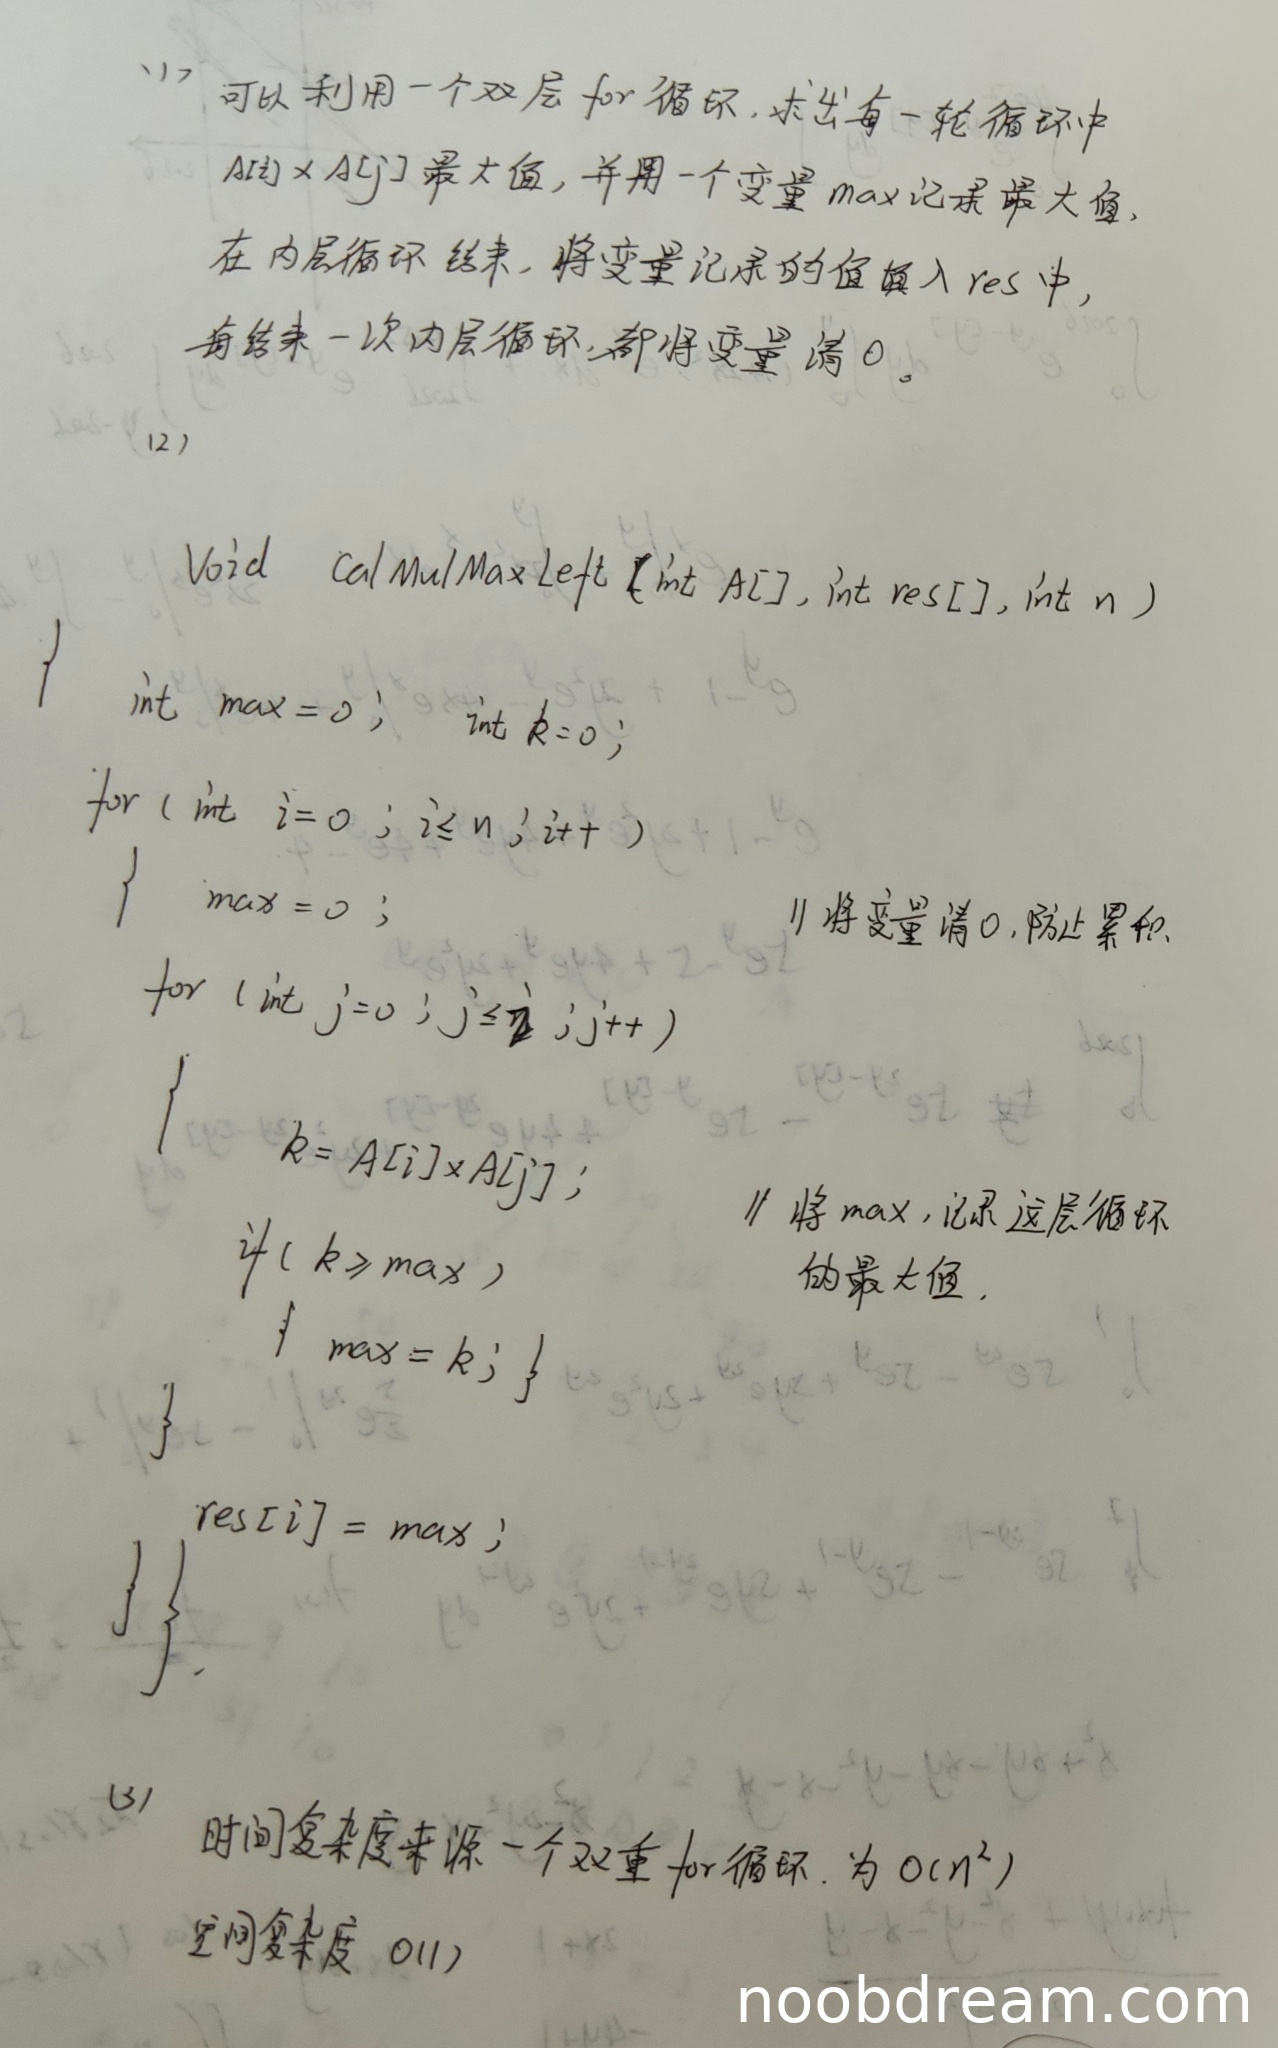 (1) 可以利用一个双层for循环,求出每一轮循环中
A[i]×A[j]最大值,并用一个变量max记录最大值,
在内层循环结束,将变量记录的值填入res中,
每结束一次内层循环,都将变量清0。
(2)
Void CalMulMaxLeft(int A[], int res[], int n)
{
int max=0; int k=0;
for(int i=0; i≤n; i++)
{ max=0; //将变量清0,防止累积.
for(int j=0; j≤i; j++)
{
k=A[i]×A[j];
if(k≥max) //将max,记录这层循环
{ max=k; } 的最大值.
}
res[i]=max;
}}
(3)
时间复杂度来源一个双重for循环.为O(n²)
空间复杂度 O(1)
noobdream.com